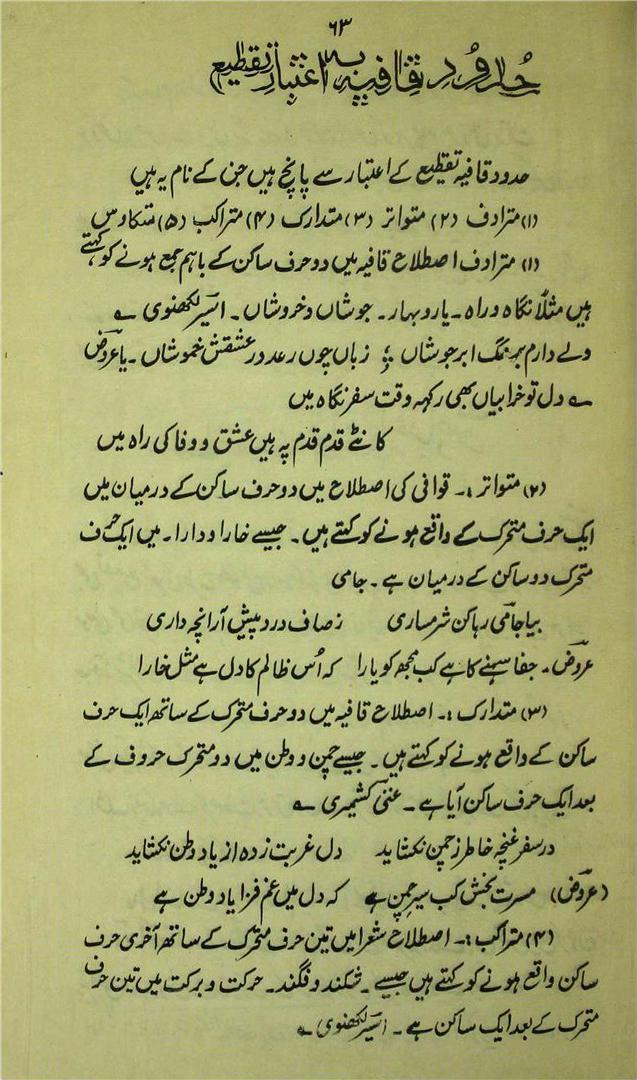 ۶۳
حدود قافیہ بہ اعتبار تقطیع
حدود قافیہ تقطیع کے اعتبار سے پانچ ہیں جن کے نام یہ ہیں
(۱) مترادف (۲) متواتر (۳) متدارک (۴) متراکب (۵) متکاوس
(۱) مترادف اصطلاح قافیہ میں دو حرف ساکن کے باہم جمع ہونے کو کہتے
ہیں مثلاً نگاہ و راہ ۔ یار و بہار ۔ جوشاں و خروشاں ۔ اسیر لکھنوی ؎
ولے دارم برنگ ابر جوشاں ؛ زباں چوں رعد در عشقش خموشاں ۔ یا عروض
؎ دل تو خرابیاں بھی رکھ وقت سفر نگاہ میں
کانٹے قدم قدم پہ ہیں عشق و وفا کی راہ میں
(۲) متواتر :۔ قوافی کی اصطلاح میں دو حرف ساکن کے درمیان میں
ایک حرف متحرک کے واقع ہونے کو کہتے ہیں ۔ جیسے خارا و دارا ۔ میں ایک حرف
متحرک دو ساکن کے درمیان ہے ۔ جامی
بیا جامی رہا کن شرمساری زصاف درد پیش آر آنچہ داری
عروض ۔ جفا سہنے کا ہے کب مجھ کو یارا کہ اُس ظالم کا دل ہے مثل خارا
(۳) متدارک :۔ اصطلاح قافیہ میں دو حرف متحرک کے ساتھ ایک حرف
ساکن کے واقع ہونے کو کہتے ہیں ۔ جیسے چمن و وطن میں دو متحرک حروف کے
بعد ایک حرف ساکن آیا ہے ۔ غنی کشمیری ؎
در سفر غنچہ خاطر ز چمن نکشاید دل غربت زدہ از یاد وطن نکشاید
(عروض) مسرت بخش کب سیر چمن ہے کہ دل میں غم فزا یاد وطن ہے
(۴) متراکب :۔ اصطلاح شعرا میں تین حرف متحرک کے ساتھ آخری حرف
ساکن واقع ہونے کو کہتے ہیں جیسے ۔ شکند و فگند ۔ حرکت و برکت میں تین حرف
متحرک کے بعد ایک ساکن ہے ۔ اسیر لکھنوی ؎